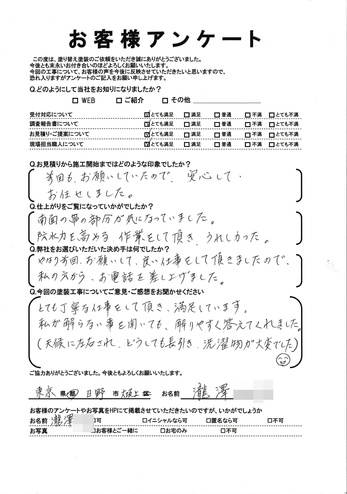 お客様アンケート
この度は、塗り替え塗装のご依頼をいただき誠にありがとうございました。
今後とも末永いお付き合いのほどよろしくお願いいたします。
今回の工事について、お客様の声を今後に反映させていただきたいと思いますので、
恐れ入りますがアンケートのご記入をお願い申し上げます。
Q.どのようにして当社をお知りになりましたか？
□ WEB □ ご紹介 □ その他
受付対応について ☑とても満足 □満足 □普通 □不満 □とても不満
調査報告書について ☑とても満足 □満足 □普通 □不満 □とても不満
お見積り・ご提案について ☑とても満足 □満足 □普通 □不満 □とても不満
現場担当職人について ☑とても満足 □満足 □普通 □不満 □とても不満
Q.お見積りから施工開始まではどのような印象でしたか？
前回も、お願いしていたので、安心して、
お任せしました。
Q.仕上がりをご覧になっていかがでしたか？
南面の 部分が気になっていました。
防水力を高める 作業をして頂き、うれしかった。
Q.弊社をお選びいただいた決め手は何でしたか？
やはり前回、お願いして、良い仕事をして頂きましたので、
私の方から、お電話を差し上げました。
Q.今回の塗装工事についてご意見・ご感想をお聞かせください
とても丁寧な仕事をして頂き、満足しています。
私が解らない事を聞いても、解りやすく答えてくれました。
(天候に左右され、どうしても長引き、洗濯物が大変でした)
ご協力ありがとうございました。今後ともよろしくお願いいたします。
東京 県・都 日野 市 区 お名前 瀧澤
お客様のアンケートやお写真をHPに掲載させていただきたいのですが、いかがでしょうか
お名前 瀧澤 可 □イニシャルなら可 □匿名なら可 □不可
お写真 □お客様とご一緒に □お宅のみ □不可